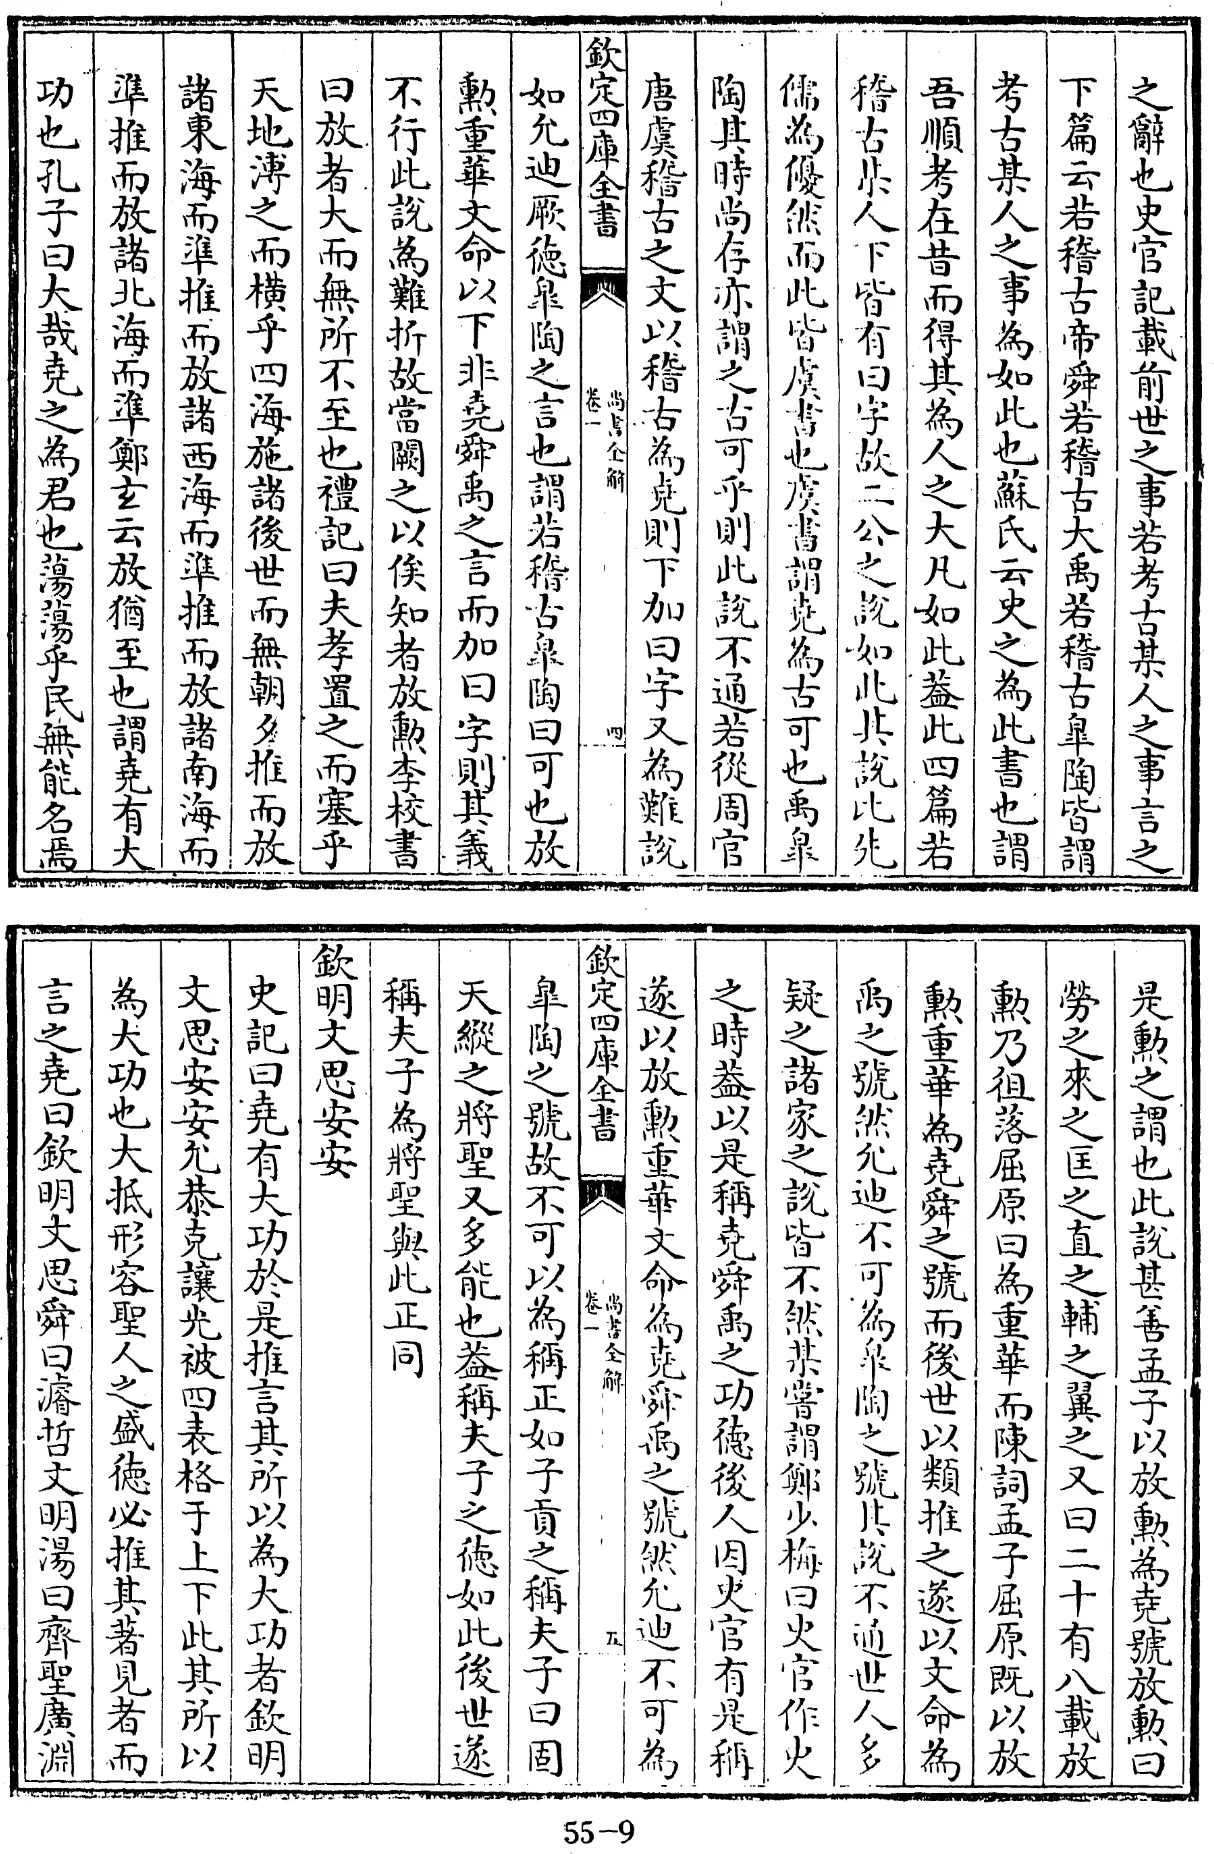 之辭也史官記載前世之事若考古某人之事言之
下篇云若稽古帝舜若稽古大禹若稽古皐陶皆謂
考古某人之事為如此也蘇氏云史之為此書也謂
吾順考在昔而得其為人之大凡如此葢此四篇若
稽古某人下皆有曰字故二公之說如此其說比先
儒為優然而此皆虞書也虞書謂堯為古可也禹皐
陶其時尚存亦謂之古可乎則此說不通若從周官
唐虞稽古之文以稽古為堯則下加曰字又為難說
欽定四庫全書
尚書全解
卷一
四
如允迪厥德皐陶之言也謂若稽古皐陶曰可也放
勲重華文命以下非堯舜禹之言而加曰字則其義
不行此說為難折故當闕之以俟知者放勲李校書
曰放者大而無所不至也禮記曰夫孝置之而塞乎
天地溥之而橫乎四海施諸後世而無朝夕推而放
諸東海而準推而放諸西海而準推而放諸南海而
準推而放諸北海而準鄭玄云放猶至也謂堯有大
功也孔子曰大哉堯之為君也蕩蕩乎民無能名焉
是勲之謂也此說甚善孟子以放勲為堯號放勲曰
勞之來之匡之直之輔之翼之又曰二十有八載放
勲乃徂落屈原曰為重華而陳詞孟子屈原既以放
勲重華為堯舜之號而後世以類推之遂以文命為
禹之號然允迪不可為皐陶之號其說不通世人多
疑之諸家之說皆不然某嘗謂鄭少梅曰史官作史
之時葢以是稱堯舜禹之功德後人因史官有是稱
遂以放勲重華文命為堯舜禹之號然允迪不可為
欽定四庫全書
尚書全解
卷一
五
皐陶之號故不可以為稱正如子貢之稱夫子曰固
天縱之將聖又多能也葢稱夫子之德如此後世遂
稱夫子為將聖與此正同
欽明文思安安
史記曰堯有大功於是推言其所以為大功者欽明
文思安安允恭克讓光被四表格于上下此其所以
為大功也大抵形容聖人之盛德必推其著見者而
言之堯曰欽明文思舜曰濬哲文明湯曰齊聖廣淵
55-9